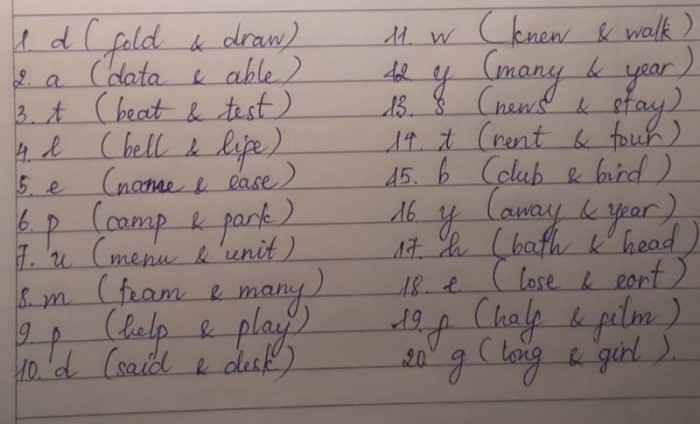 1. d (fold & draw)
2. a (data & able)
3. t (beat & test)
4. l (bell & life)
5. e (name & ease)
6. p (camp & park)
7. u (menu & unit)
8. m (team & many)
9. p (help & play)
10. d (said & desk)
11. w (knew & walk)
12 y (many & year)
13. s (news & stay)
14. t (rent & tour)
15. b (club & bird)
16 y (away & year)
17. h (bath & head)
18. e (lose & eart)
19. f (half & film)
20 g (long & girl).